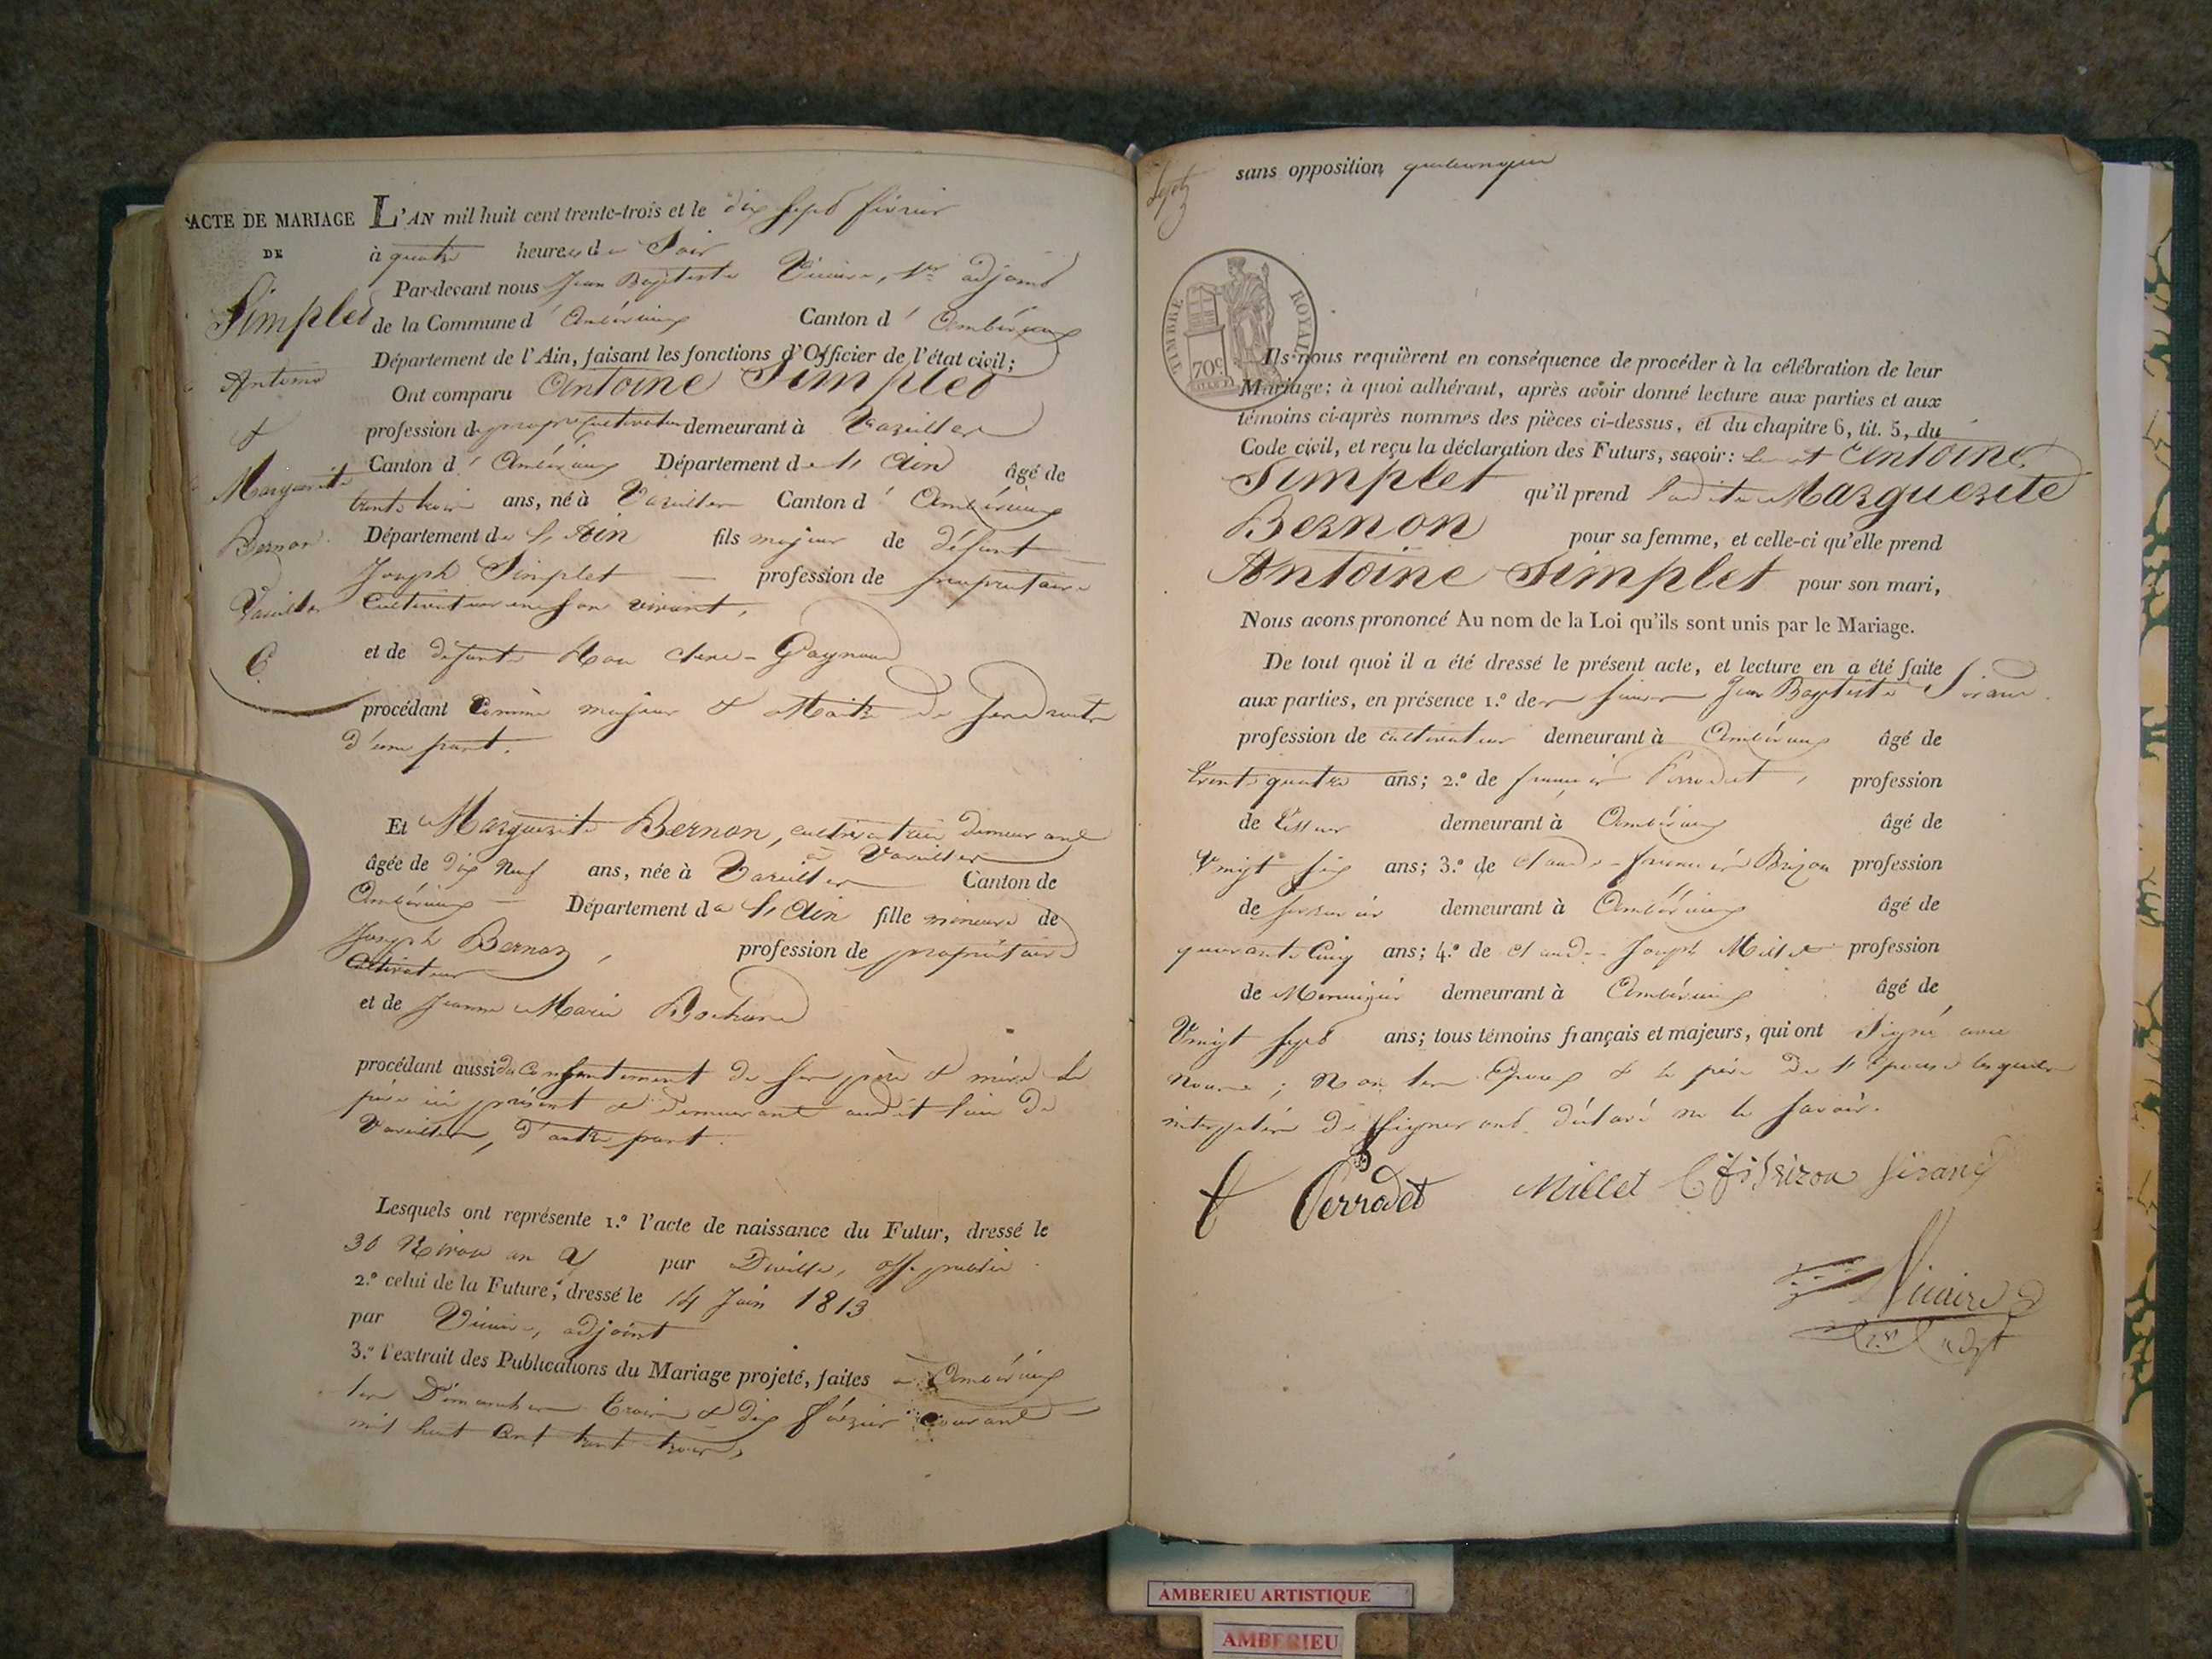 ACTE DE MARIAGE
DE
Simplet
Antoine
&
Marguerite
Bernon
Vareilles
6
L'AN mil huit cent trente-trois et le dix sept février
à quatre heures du Soir
Par-devant nous Jean Baptiste Vicaire, 1er adjoint
de la Commune d' Ambérieux Canton d' Ambérieux
Département de l'Ain, faisant les fonctions d'Officier de l'état civil;
Ont comparu Antoine Simplet
profession de propre cultivateur demeurant à Vareilles
Canton d' Ambérieux Département de l'Ain âgé de
trente trois ans, né à Vareilles Canton d' Ambérieux
Département de l'Ain fils majeur de défunt
Joseph Simplet — profession de propriétaire
Cultivateur en son vivant,
et de défunte
procédant Comme majeur & Maitre de ses droits
d'une part.
Et Marguerite Bernon, cultivatrice demeurant
à Vareilles
âgée de dix Neuf ans, née à Vareilles Canton de
Ambérieux — Département de l'Ain fille mineure de
Joseph Bernon, profession de propriétaire
Cultivateur
et de Jeanne Marie Bochard
procédant aussi du Consentement de ses père & mère le
père ici présent & demeurant audit lieu de
Vareilles, d'autre part.
Lesquels ont représente 1.º l'acte de naissance du Futur, dressé le
30 Nivose an par off. public
2.º celui de la Future, dressé le 14 Juin 1813
par Vicaire, adjoint
3.º l'extrait des Publications du Mariage projeté, faites à Ambérieux
les Dimanches Trois & dix février courant
mil huit Cent trente trois,
sans opposition quelconque
TIMBRE ROYAL
70c
Ils nous requièrent en conséquence de procéder à la célébration de leur
Mariage: à quoi adhérant, après avoir donné lecture aux parties et aux
témoins ci-après nommés des pièces ci-dessus, et du chapitre 6, tit. 5, du
Code civil, et reçu la déclaration des Futurs, savoir: Antoine
Simplet qu'il prend ladite Marguerite
Bernon pour sa femme, et celle-ci qu'elle prend
Antoine Simplet pour son mari,
Nous avons prononcé Au nom de la Loi qu'ils sont unis par le Mariage.
De tout quoi il a été dressé le présent acte, et lecture en a été faite
aux parties, en présence 1.º des sieurs Jean Baptiste Sirand
profession de cultivateur demeurant à Ambérieux âgé de
trente quatre ans; 2.º de françois Perrodet, profession
de demeurant à Ambérieux âgé de
Vingt six ans; 3.º de Claude françois Brizon profession
de serrurier demeurant à Ambérieux âgé de
quarante Cinq ans; 4.º de Claude Joseph Millet profession
de Menuisier demeurant à Ambérieux âgé de
Vingt sept ans; tous témoins français et majeurs, qui ont Signé avec
Nous; Non les Epoux & le père de l'épouse lesquels
interpellés de signer ont déclaré ne le savoir.
Perrodet Millet Brizon Sirand
Vicaire
1er adjt
AMBERIEU ARTISTIQUE
AMBERIEU